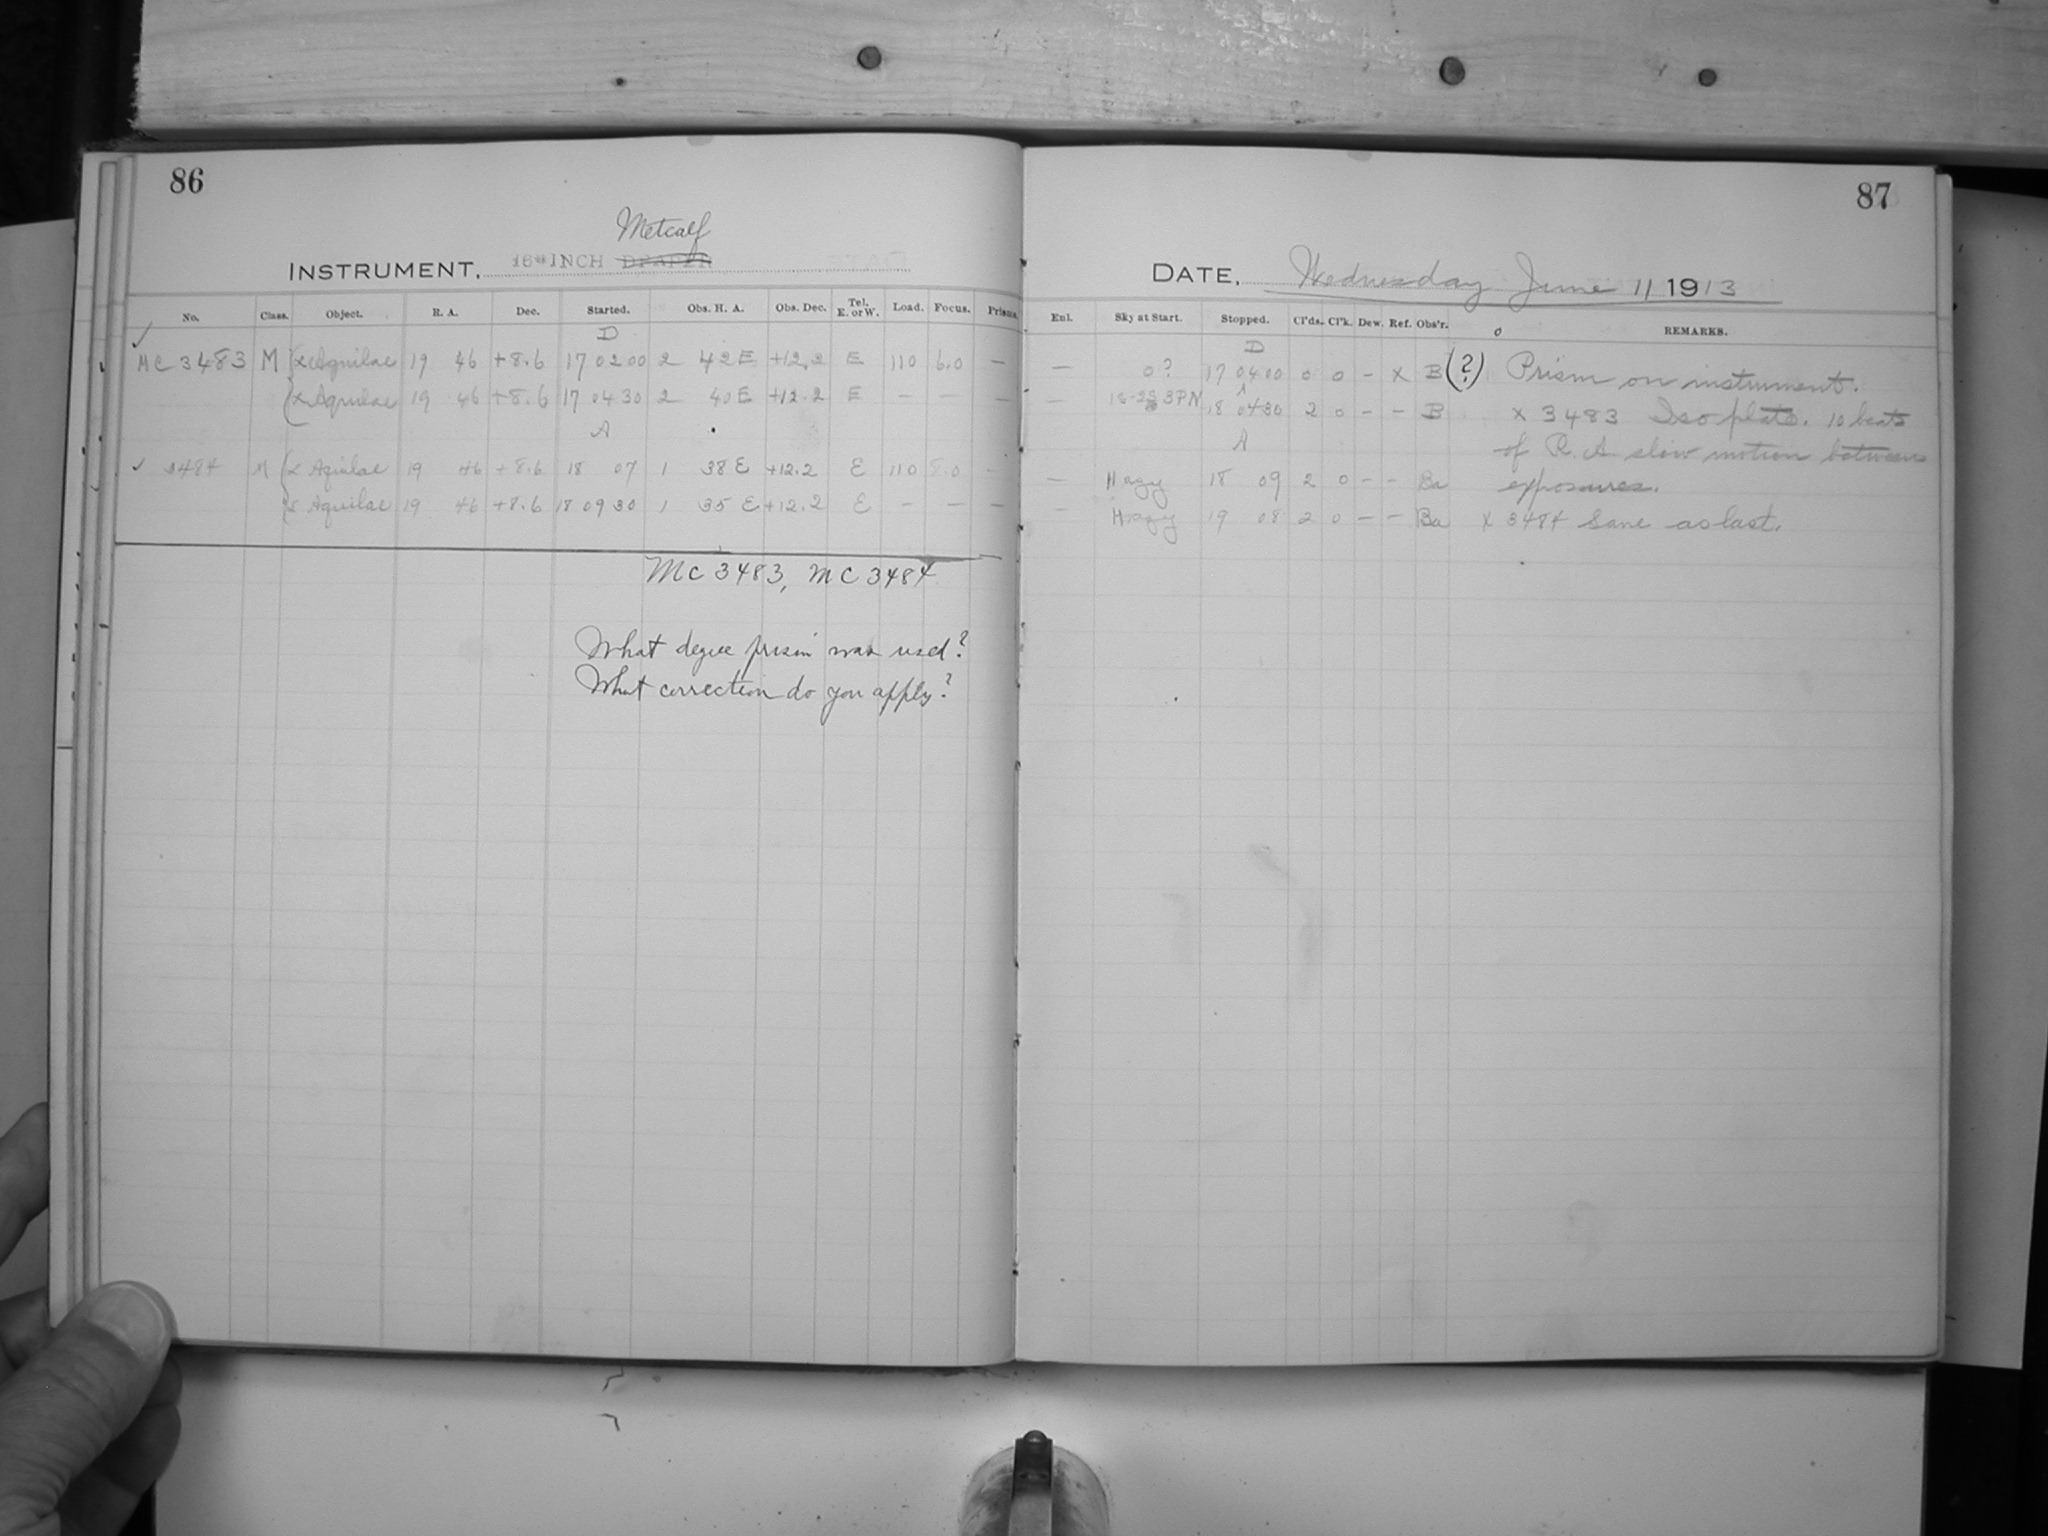 86
Metcalf
INSTRUMENT, 16 INCH DRAPER
No. Class. Object. R. A. Dec. Started. Obs. H. A. Obs. Dec. Tel. E. or W. Load. Focus. Prisms.
D
✓ MC 3483 M { α Aquilae 19 46 +8.6 17 02 00 2 42 E +12.2 E 110 6.0 —
{ α Aquilae 19 46 +8.6 17 04 30 2 40 E +12.2 E — — —
A
✓ 3484 M { α Aquilae 19 46 +8.6 18 07 1 38 E +12.2 E 110 —
{ α Aquilae 19 46 +8.6 18 09 30 1 35 E +12.2 E — — —
MC 3483, MC 3484
What degree prism was used?
What correction do you apply?
87
DATE, Wednesday June 11 1913
Enl. Sky at Start. Stopped. Cl'ds. Cl'k. Dew. Ref. Obs'r. REMARKS.
D
— 0? 17 04 00 0 0 - x B (?) Prism on instrument.
— 18 04 30 2 0 - - B x 3483 Iso plate. 10 beats
A of R. A. slow motion between
— Hazy 18 09 2 0 - - Ba exposures.
— Hazy 19 08 2 0 - - Ba x 3484 Same as last.